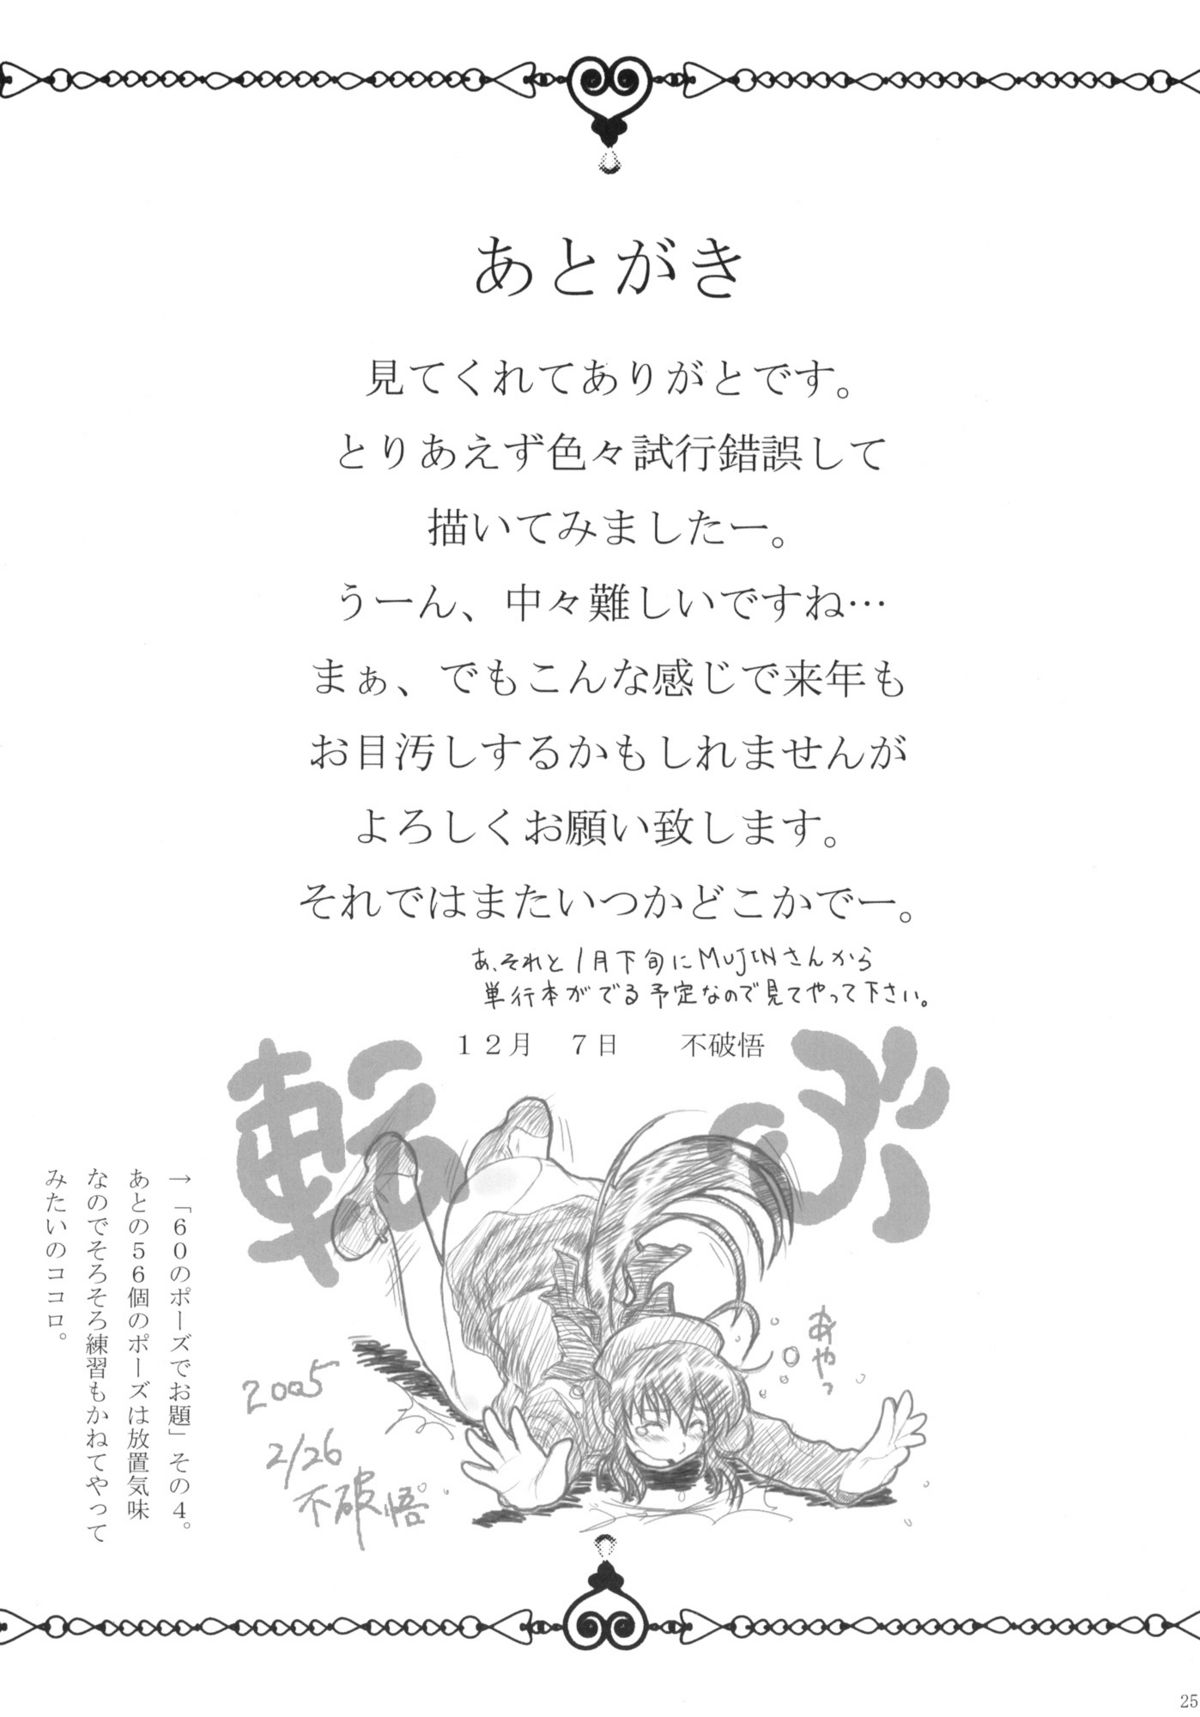 あとがき
見てくれてありがとです。
とりあえず色々試行錯誤して
描いてみましたー。
うーん、中々難しいですね…
まぁ、でもこんな感じで来年も
お目汚しするかもしれませんが
よろしくお願い致します。
それではまたいつかどこかでー。
あ、それと1月下旬にMUJINさんから
単行本がでる予定なので見てやって下さい。
12月 7日 不破悟
転ぶ
あやっ
2005
2/26
不破悟
→「60のポーズでお題」その4。
あとの56個のポーズは放置気味
なのでそろそろ練習もかねてやって
みたいのココロ。
25